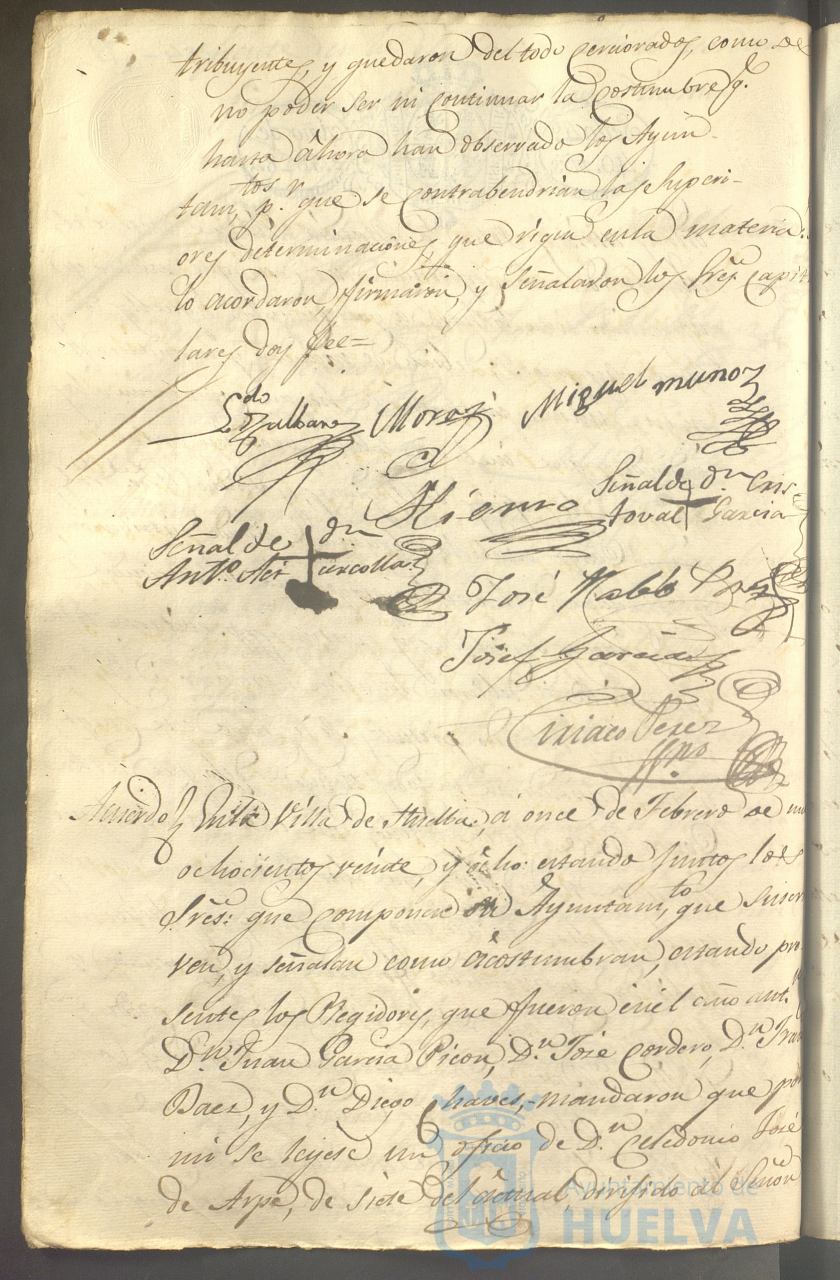 tribuyentes, y quedaron del todo cerciorados, como de
no poder ser ni continuar la costumbre q.e
hasta ahora han observado los Ayun-
tam.tos p.r que se contrabendrian las Superi-
ores determinaciones que rigen enla materia:
lo acordaron, firmaron, y señalaron los Sres. capit
lares doy fee=
Ldo Morað Miguel munoz
Señal de dn Cris-
toval Garcia
Señal de dn
Ant.o
José Perez
Josef Garcia
Ciriaco Perez
Ssno
Acuerdo En la Villa de Huelba, á once de Febrero de mil
ochocientos veinte, y ocho: estando juntos los
Sres: que componen su Ayuntam.to, que suscri
ven, y señalan como acostumbran, estando pre
sentes los Regidores, que fueron en el año ant.r
D.n Juan Garcia Picon, D.n José Cordero, D.n Fran
Baez, y D.n Diego Chaves,- mandaron que por
mi se leyese un oficio de D.n Celedonio José
de Arpe, de siete del actual, dirijido al Señor
Ayuntamiento de
HUELVA